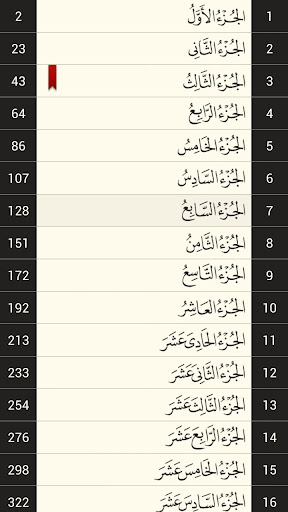 1 الجُزْءُ الأَوَّلُ 2
2 الجُزْءُ الثَّانِى 23
3 الجُزْءُ الثَّالِثُ 43
4 الجُزْءُ الرَّابِعُ 64
5 الجُزْءُ الخَامِسُ 86
6 الجُزْءُ السَّادِسُ 107
7 الجُزْءُ السَّابِعُ 128
8 الجُزْءُ الثَّامِنُ 151
9 الجُزْءُ التَّاسِعُ 172
10 الجُزْءُ العَاشِرُ 192
11 الجُزْءُ الحَادِىَ عَشَرَ 213
12 الجُزْءُ الثَّانِىَ عَشَرَ 233
13 الجُزْءُ الثَّالِثَ عَشَرَ 254
14 الجُزْءُ الرَّابِعَ عَشَرَ 276
15 الجُزْءُ الخَامِسَ عَشَرَ 298
16 الجُزْءُ السَّادِسَ عَشَرَ 322